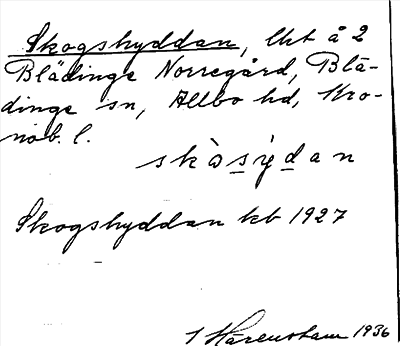 Skogshyddan, lht å 2
Blädinge Norregård, Blä-
dinge sn, Allbo hd, Kro-
nob. l.
skòsýdan
Skogshyddan kb 1927
Härenstam 1936